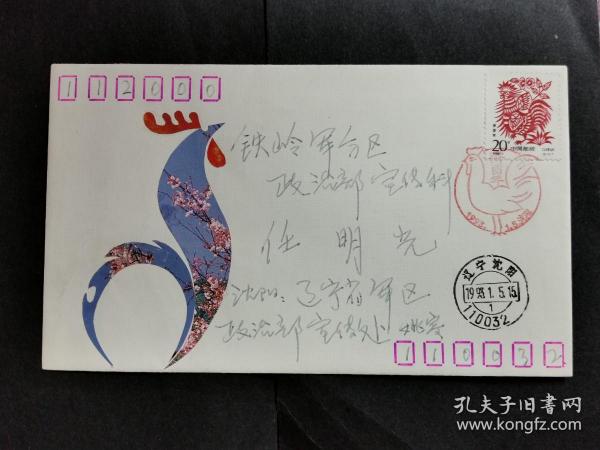 112000
铁岭军分区
政治部宣传科
任明光
沈阳:辽宁省军区
政治部宣传处
110032
20分
中国邮政
1993.1.5.沈阳
辽宁沈阳
1993.1.5.15
1
110032
孔夫子旧书网
www.kongfz.com